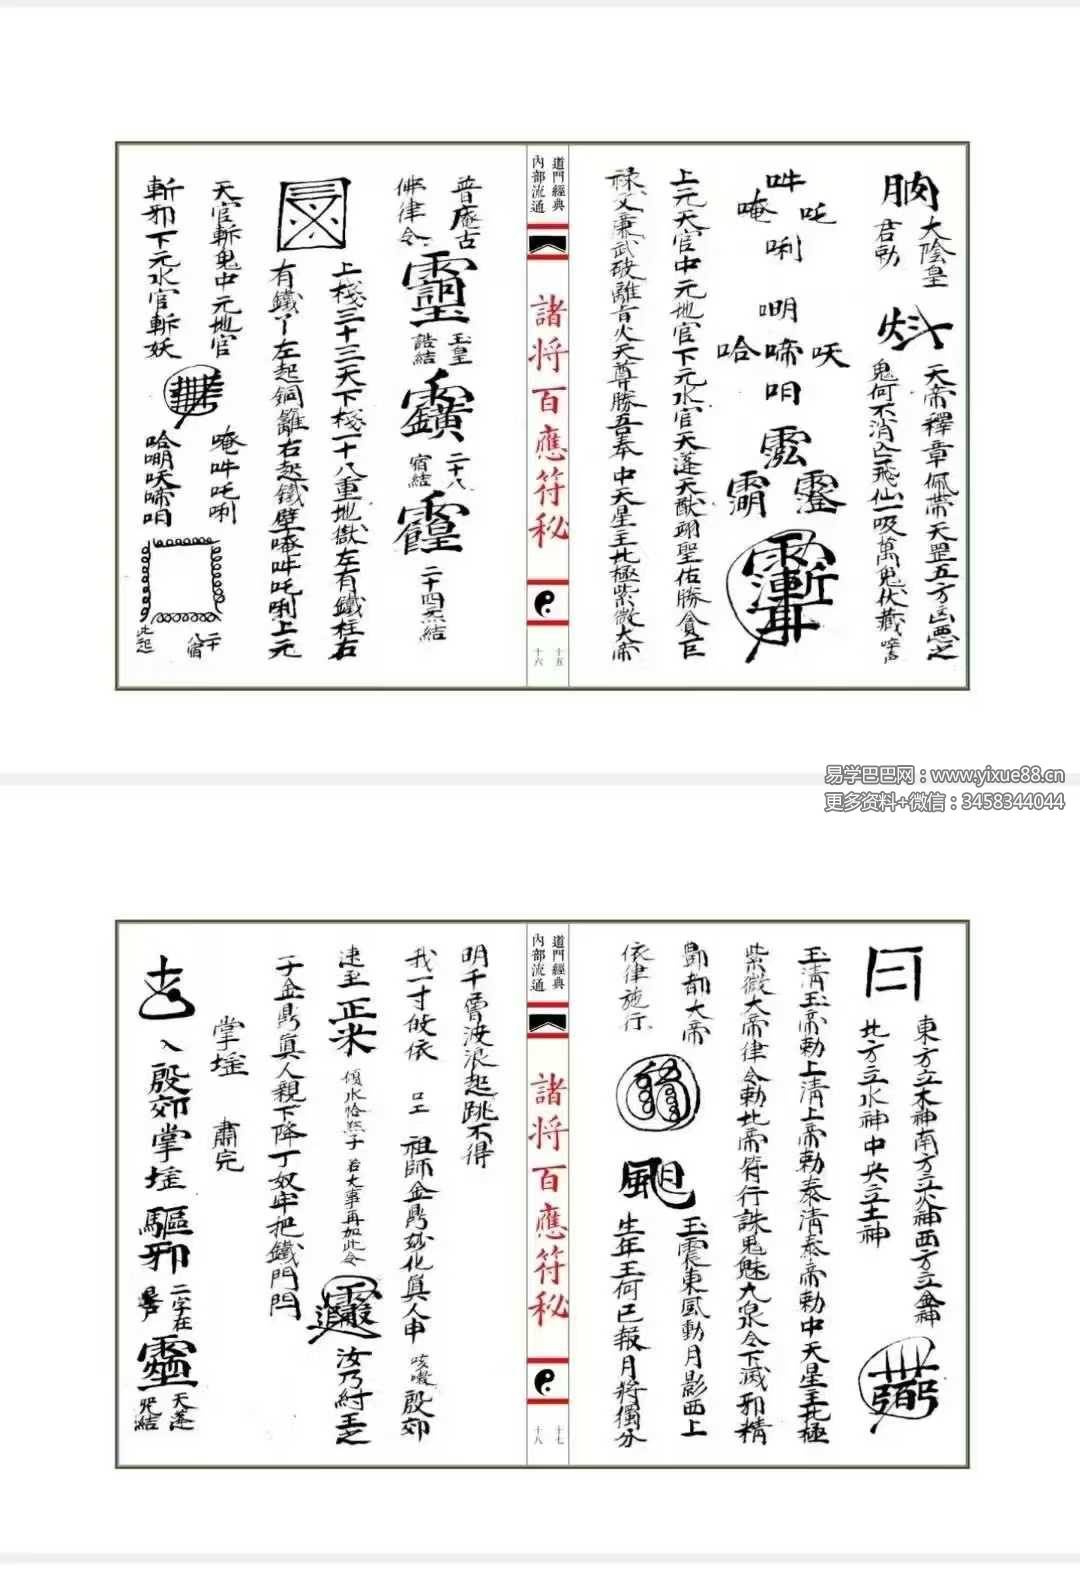 大陰皇
君勅
天帝釋章佩帶天罡五方凶惡之
鬼何不消亾飛仙一吸萬鬼伏藏
吽
唵 吒
唎
㖼
哈啼㕭
呬
上元天官中元地官下元水官天蓬天猷翊聖佑勝貪巨
祿文廉武破離宮火天尊勝吾奉中天星主北極紫微大帝
道門經典
內部流通
諸将百應符秘
十五
十六
普庵古
佛律令
玉皇
誥結
二十八
宿結
二十四炁結
上棧三十三天下棧一十八重地獄左有鐵柱右
有鐵丫左起銅籬右起鐵壁唵吽吒唎上元
天官斬鬼中元地官
斬邪下元水官斬妖
唵吽吒唎
此起
易学巴巴网：www.yixue88.cn
更多资料+微信：3458344044
東方立木神南方立火神西方立金神
北方立水神中央立土神
玉清玉帝勅上清上帝勅泰清泰帝勅中天星主北極
紫微大帝律令勅北帝符行誅鬼魅九泉令下滅邪精
酆都大帝
依律施行
玉震東風動月影西上
生年王何已報月将獨分
道門經典
內部流通
諸将百應符秘
十七
十八
明千層波浪起跳不得
我一寸皈依
祖師金鼎妙化真人申
殷郊
速至
傾水恰然子若大事再如此令
汝乃紂王之
子金鼎真人親下降丁奴牢把鐵門閂
掌瘟 肅完
入殷郊掌瘟驅邪
二字在
天蓬
咒結